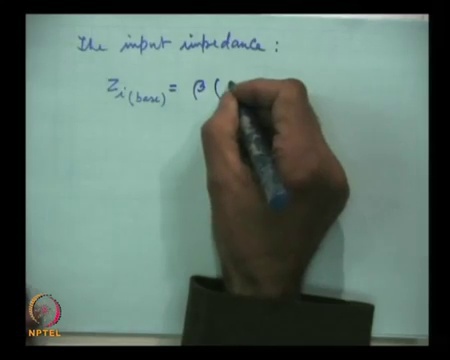 The input impedance :
Zi(base) = β (
NPTEL